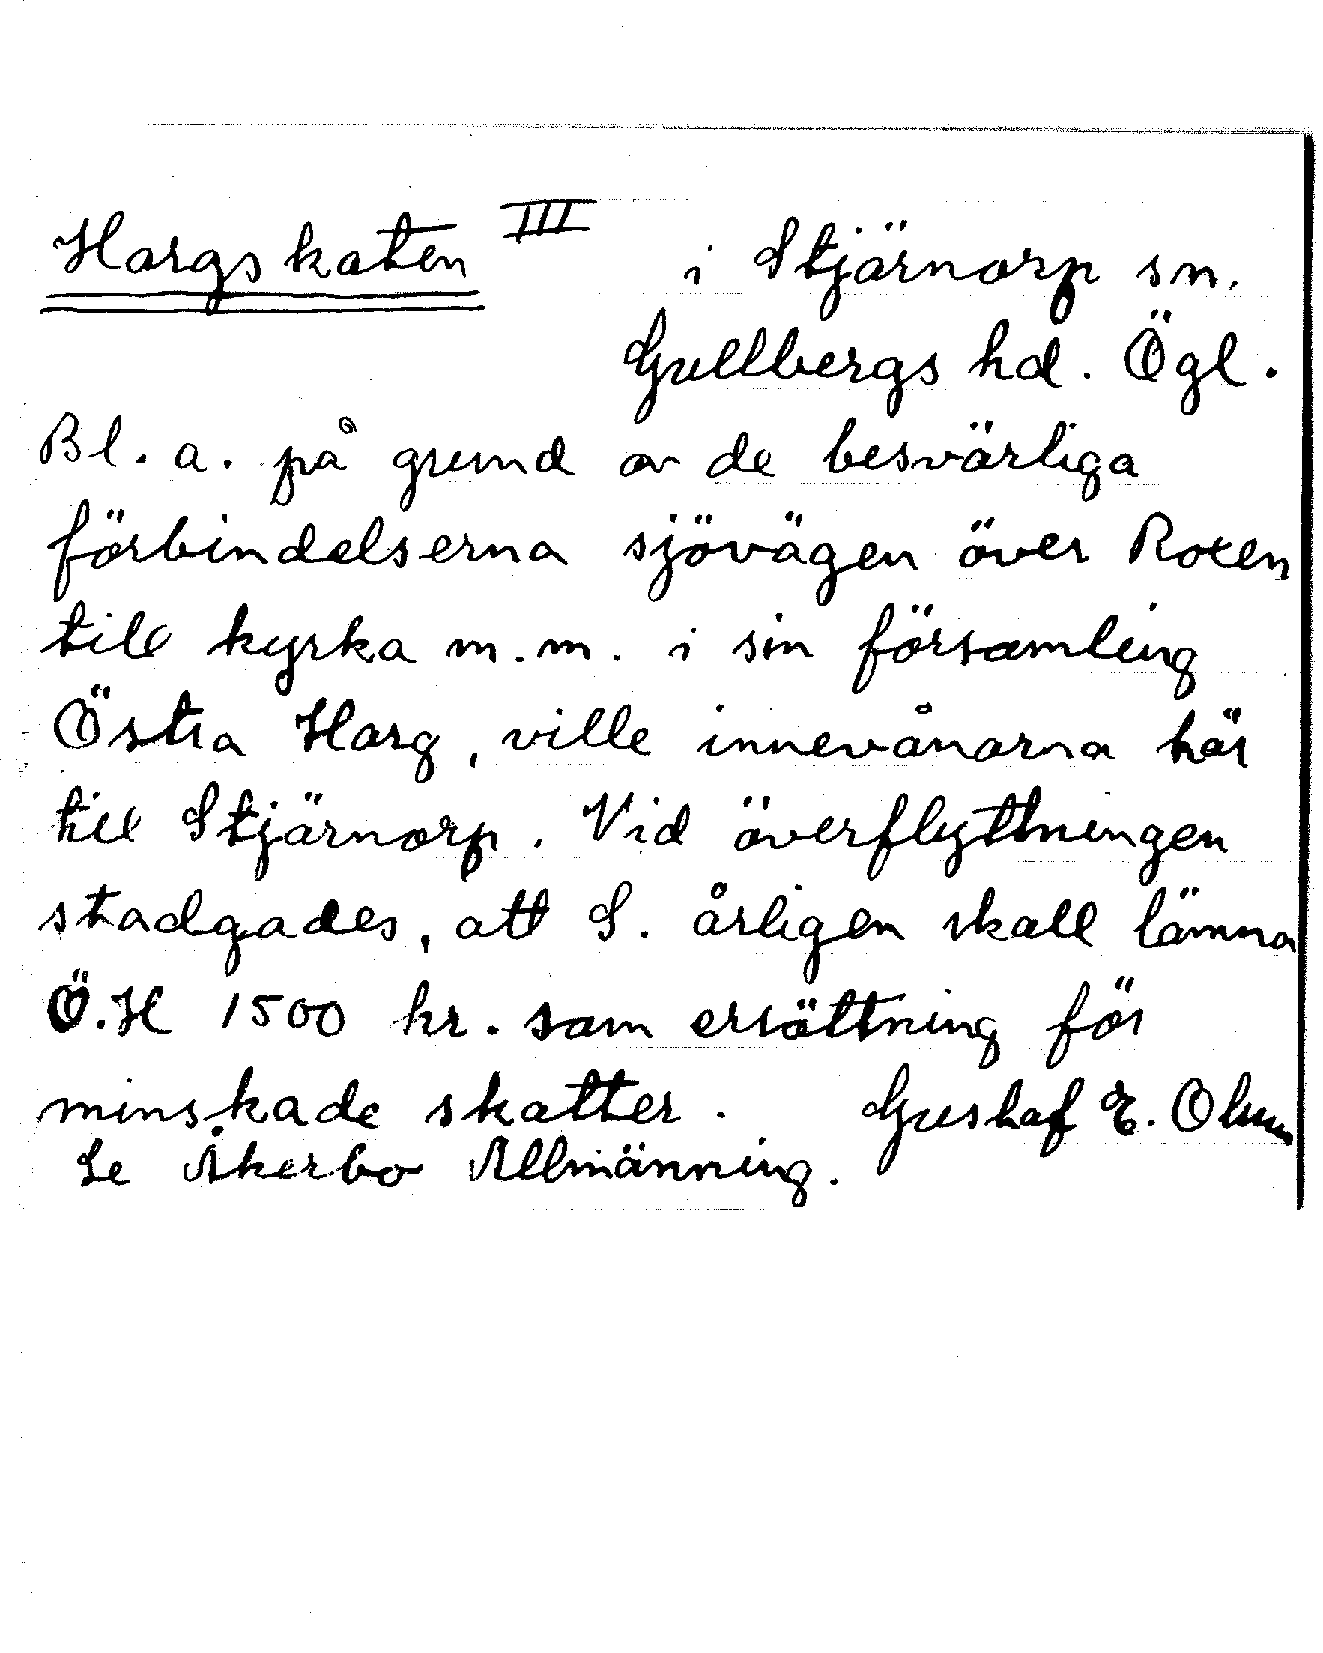 Hargskaten III i Stjärnorp sn.
Gullbergs hd. Ögl.
Bl. a. på grund av de besvärliga
förbindelserna sjövägen över Roxen
till kyrka m.m. i sin församling
Östra Harg, ville innevånarna här
till Stjärnorp. Vid överflyttningen
stadgades, att S. årligen skall lämna
Ö.H 1500 kr. som ersättning för
minskade skatter. Gustaf E.
Se Åkerbo Allmänning.